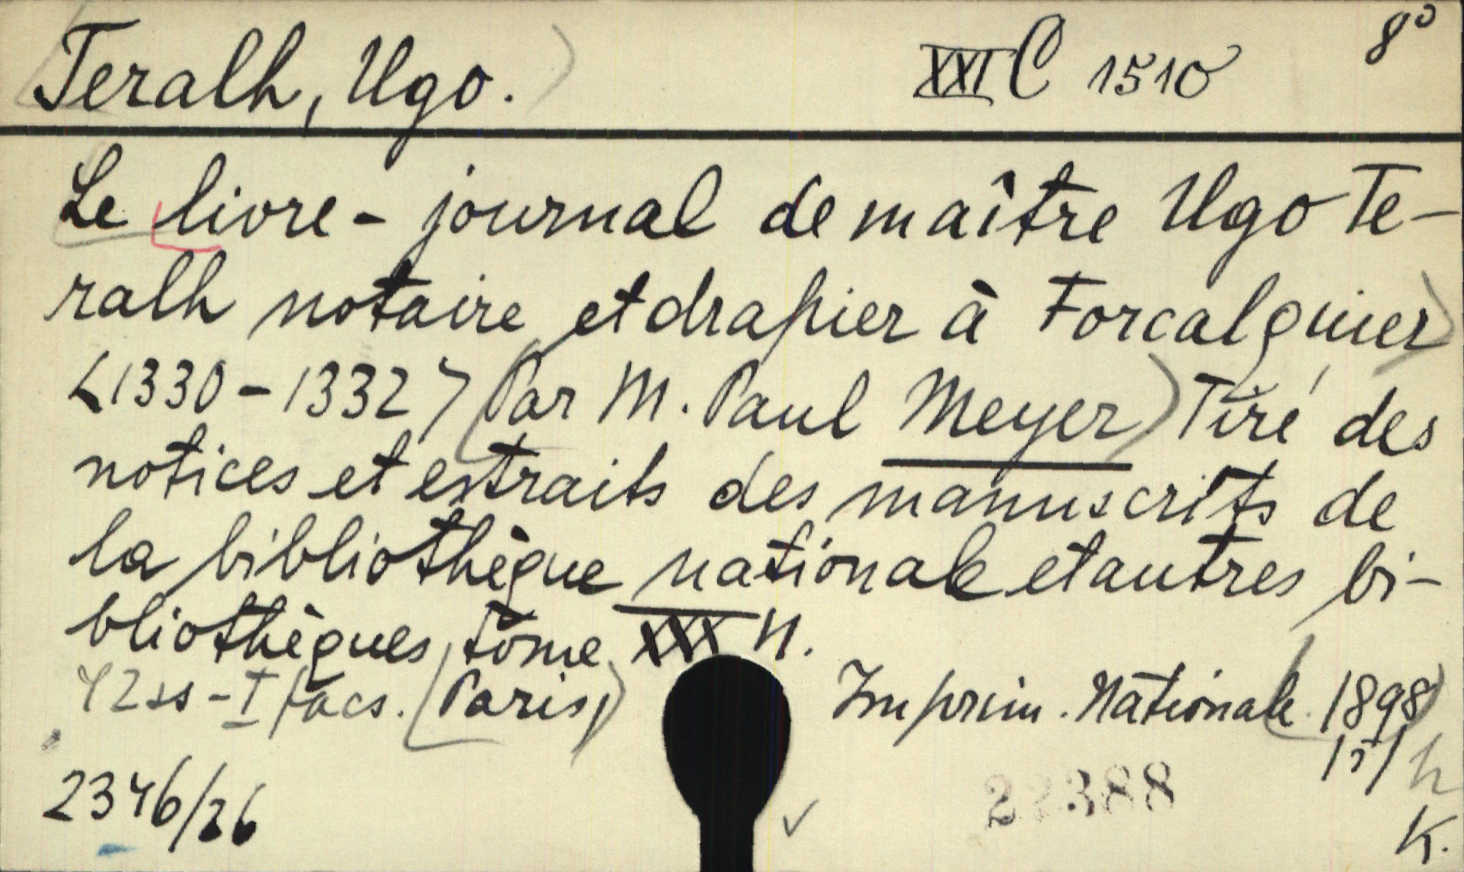 Teralh, Ugo. XXI C 1510 8°
Le livre - journal de maître Ugo Te-
ralh notaire et drapier à Forcalquier
<1330-1332> Par M. Paul Meyer Tiré des
notices et extraits des manuscrits de
la bibliothèque nationale et autres bi-
bliothèques, tome XXX
Paris, Imprim. Nationale. 1898
2346/26 22388
K.